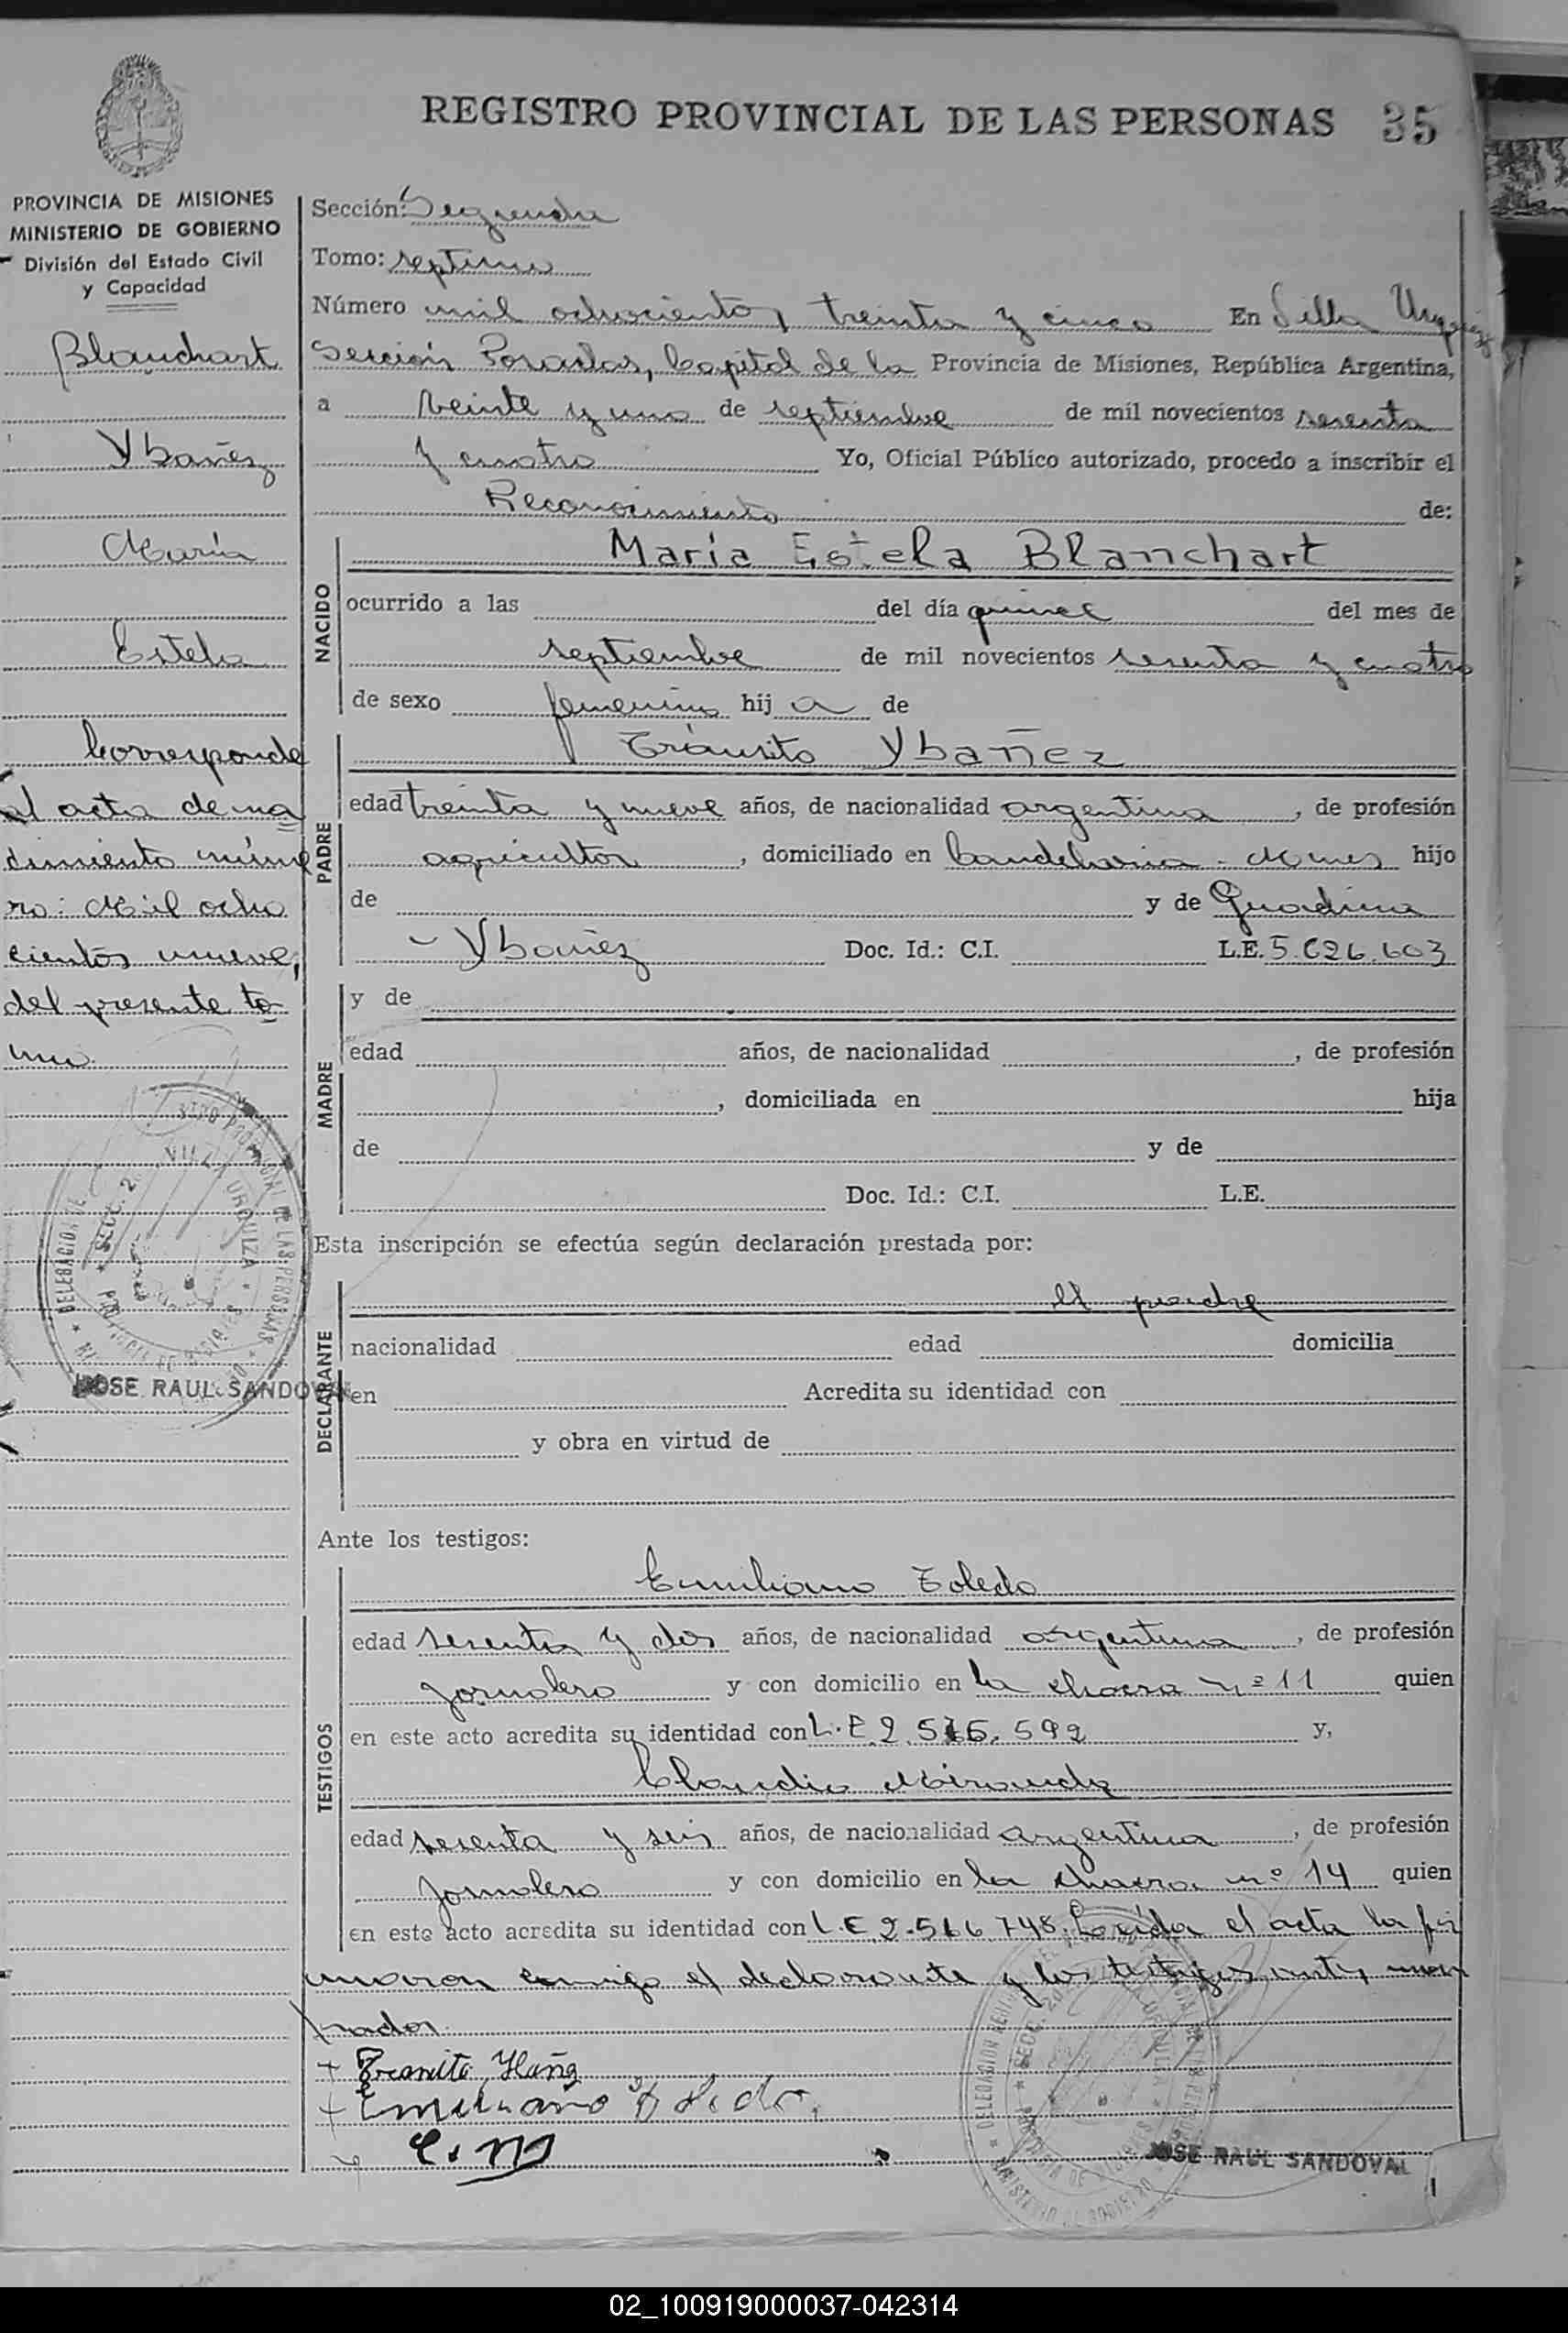 REGISTRO PROVINCIAL DE LAS PERSONAS 35
PROVINCIA DE MISIONES
MINISTERIO DE GOBIERNO
División del Estado Civil
y Capacidad
Blanchart
Ybañez
María
Estela
Corresponde
al acta de na
cimiento núme
ro: Mil ocho
cientos nueve,
del presente to-
mo.
JOSE RAUL SANDOVAL
Sección: Segunda
Tomo: septimo
Número mil ochocientos treinta y cinco En Villa Urquiza
Sección Posadas, Capital de la Provincia de Misiones, República Argentina,
a veinte y uno de septiembre de mil novecientos sesenta
y cuatro Yo, Oficial Público autorizado, procedo a inscribir el
Reconocimiento de:
NACIDO
María Estela Blanchart
ocurrido a las del día quince del mes de
septiembre de mil novecientos sesenta y cuatro
de sexo femenino hij a de
PADRE
Tránsito Ybañez
edad treinta y nueve años, de nacionalidad argentina, de profesión
agricultor, domiciliado en Candelaria - Mnes hijo
de y de Guadina
- Ybañez Doc. Id.: C.I. L.E. 5.626.603
MADRE
y de
edad años, de nacionalidad , de profesión
, domiciliada en hija
de y de
Doc. Id.: C.I. L.E.
Esta inscripción se efectúa según declaración prestada por:
DECLARANTE
el padre
nacionalidad edad domicilia
en Acredita su identidad con
y obra en virtud de
Ante los testigos:
TESTIGOS
Emiliano Toledo
edad sesenta y dos años, de nacionalidad argentina, de profesión
jornalero y con domicilio en la chacra nº 11 quien
en este acto acredita su identidad con L.E 2.516.592 y,
Claudio Miranda
edad sesenta y seis años, de nacionalidad argentina, de profesión
jornalero y con domicilio en la chacra nº 14 quien
en este acto acredita su identidad con L.E 2.566.748. Leída el acta la fir
maron conmigo el declarante y los testigos
+ Tranito Ybañez
+ Emiliano Toledo.
C. M
JOSE RAUL SANDOVAL
02_100919000037-042314